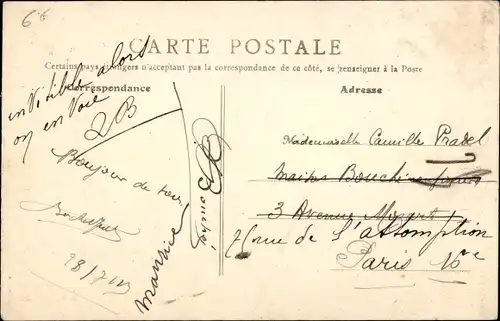 6
CARTE POSTALE
Certains pays étrangers n'acceptant pas la correspondance de ce côté, se renseigner à la Poste
Correspondance
invisible alors
on envoie
2B
Bonjour de
Maurice
Adresse
Mademoiselle Camille Pradel
Maison Bouch
3 Avenue Mozart
7 rue de l'assomption
Paris 16me